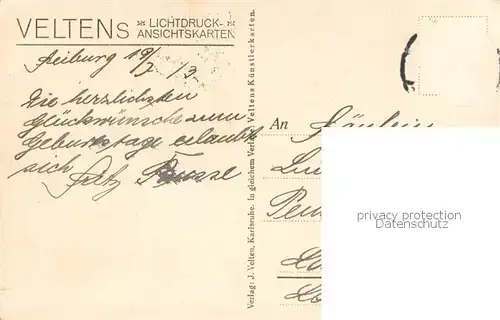 VELTENs * LICHTDRUCK-
ANSICHTSKARTEN *
Freiburg 19/3 13
Die herzlichsten
Glückwünsche zum
Geburtstage erlaubt
sich
Fritz Busse
Verlag: J. Velten, Karlsruhe. in gleichem Verlag Veltens Künstlerkarten.
An Fräulein
privacy protection
Datenschutz